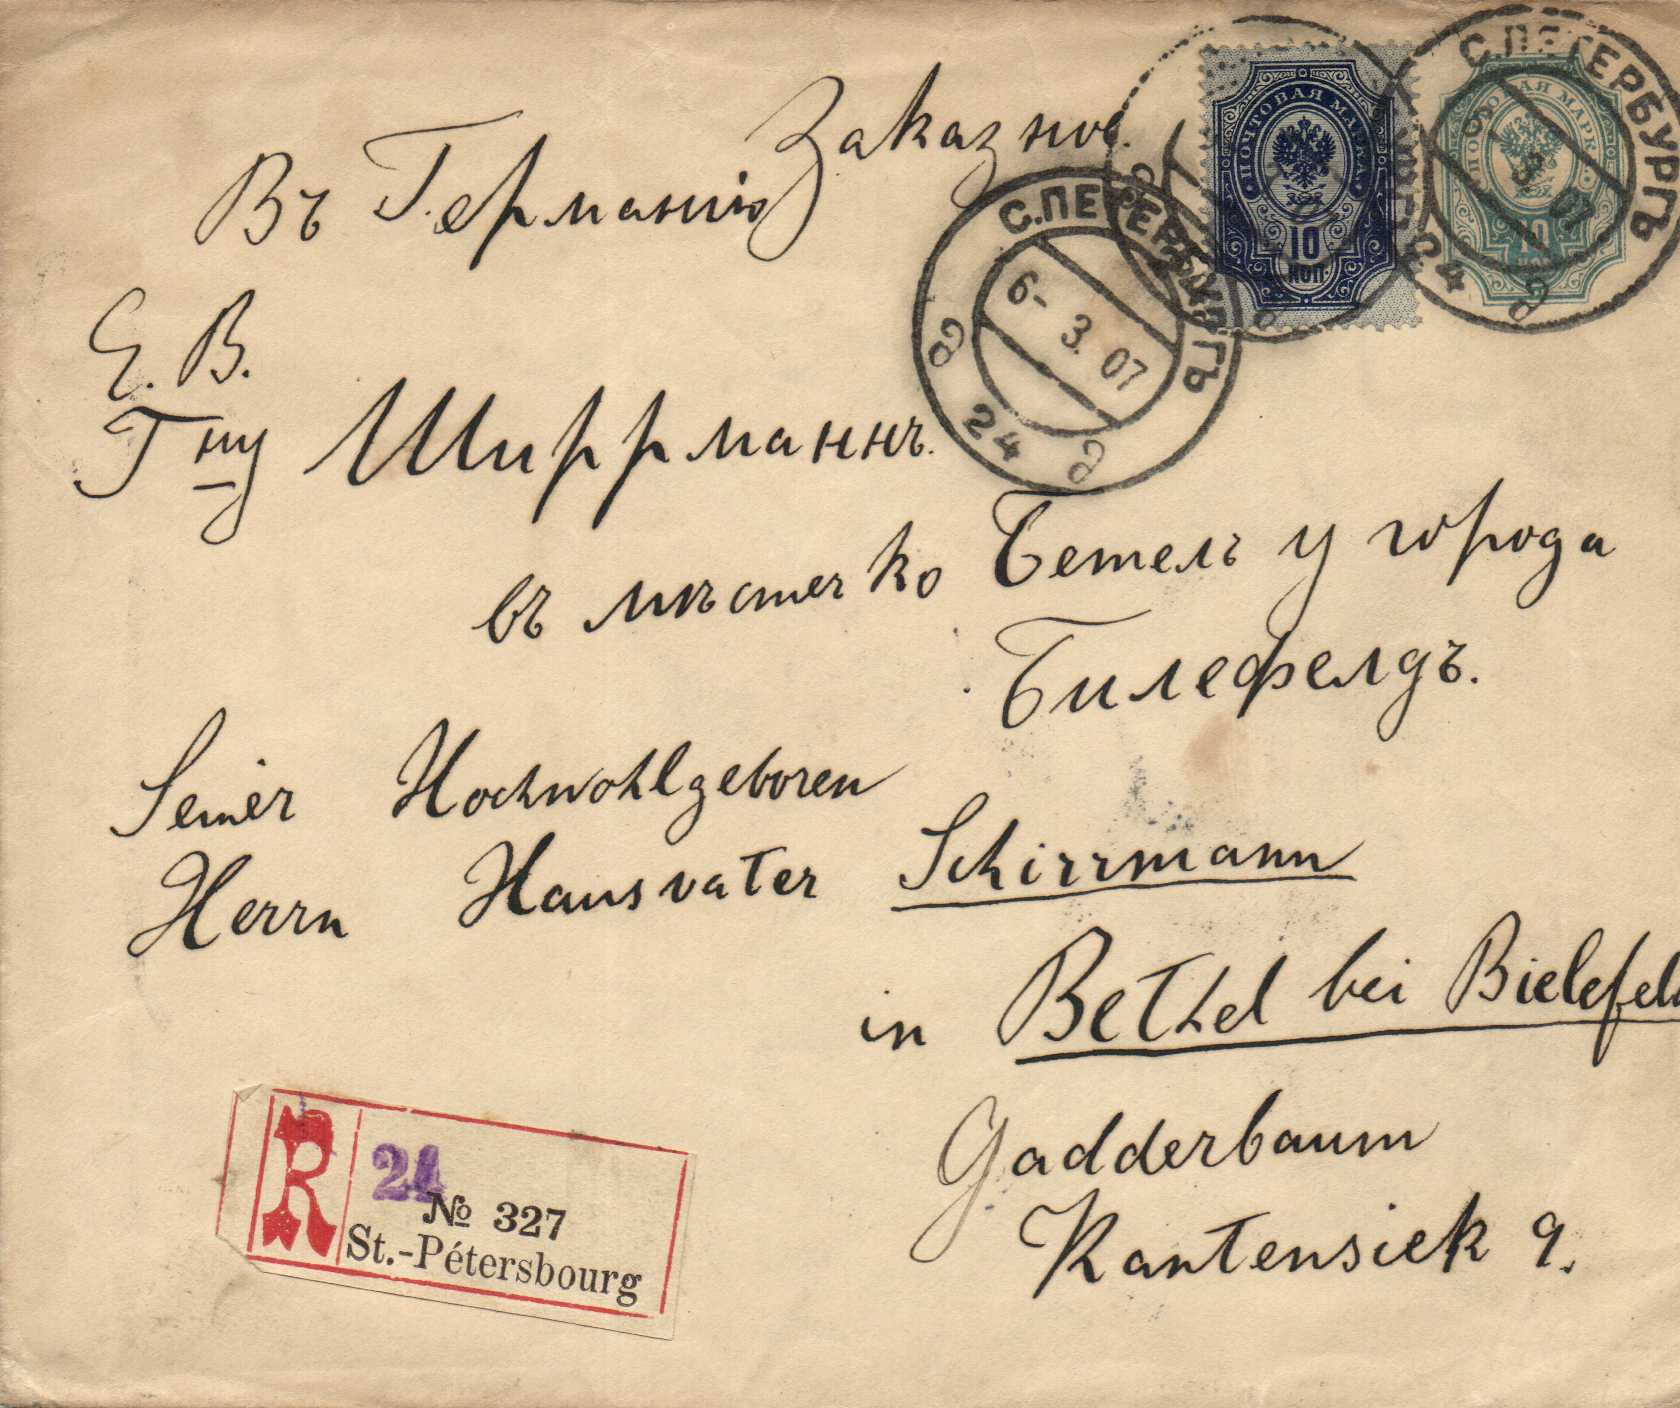 Заказное.
Въ Германію
ПОЧТОВАЯ МАРКА
10
КОП.
ПОЧТОВАЯ МАРК
10
С.ПЕТЕРБУРГЪ
3 07
24
С.ПЕТЕРБУРГЪ
6- 3. 07
24
Е. В.
Гну Ширрманнъ.
въ мѣстечко Бетель у города
Билефелдъ.
Seiner Hochwohlgeboren
Herrn Hausvater Schirrmann
in Bethel bei Bielefeld
Gadderbaum
Kantensiek 9.
R
24
№ 327
St.-Pétersbourg